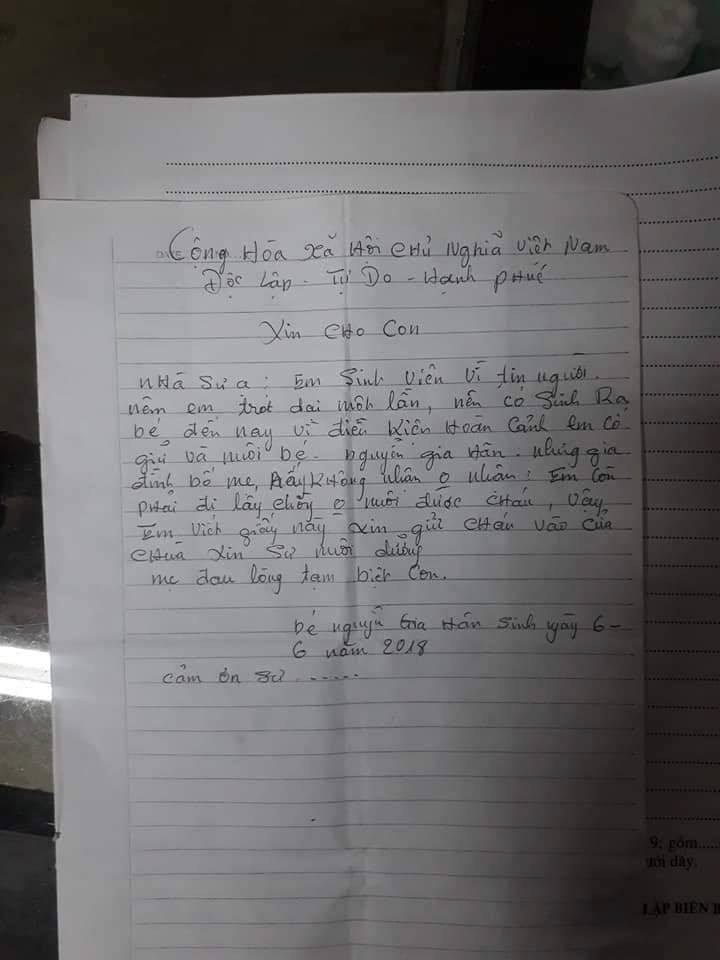 Cộng Hòa Xã Hội Chủ Nghĩa Việt Nam
Độc Lập - Tự Do - Hạnh Phúc
Xin Cho Con
Nhà Sư ạ: Em Sinh Viên Vì tin người.
nêm em trót dai một lần, nên có Sinh Ra
bé đến nay vì điều Kiên Hoàn Cảnh em Cố
giữ và nuôi bé. nguyễn gia Hân. nhưng gia
đình bố mẹ, Không nhân o nhân: Em Còn
phải đi lấy chồng o nuôi được cháu, Vậy
Em Viết giấy này xin gửi cháu vào cửa
chùa xin Sư nuôi dưỡng
mẹ đau lòng tạm biệt con.
bé nguyễn Gia Hân Sinh ngày 6-
6 năm 2018
cảm ơn sư ......
9; gồm....
ưới đây.
LẬP BIÊN B